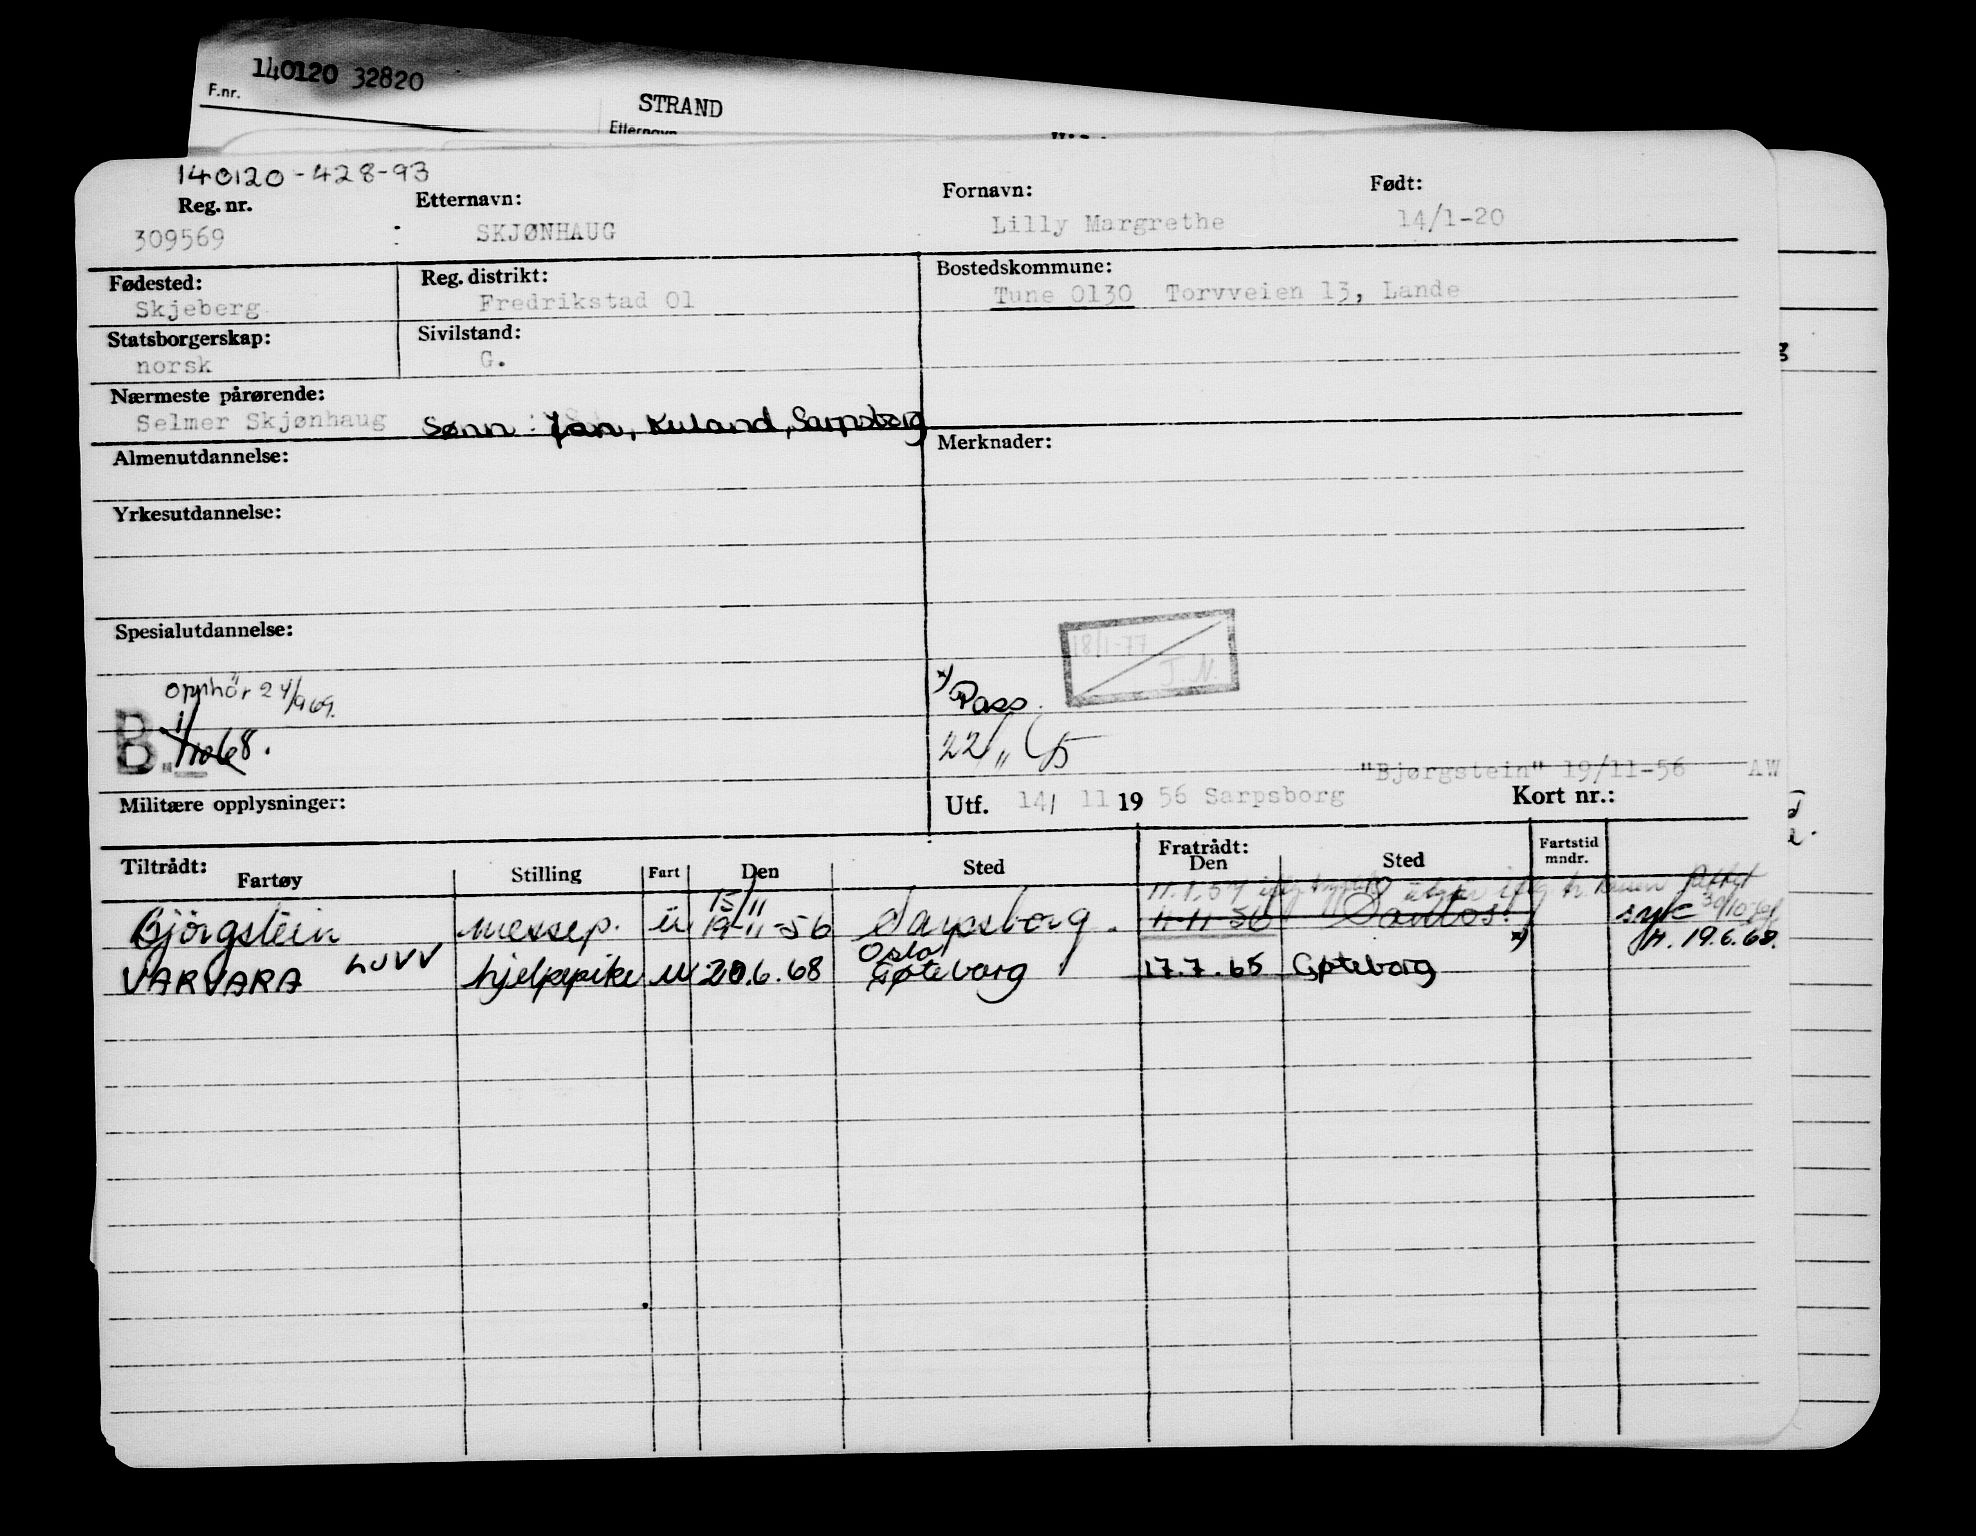 140120 32820
F.nr.
STRAND
Etternavn
140120-428-93
Reg. nr.
Etternavn:
Fornavn:
Født:
309569
SKJØNHAUG
Lilly Margrethe
14/1-20
Fødested:
Reg. distrikt:
Bostedskommune:
Skjeberg
Fredrikstad 01
Tune 0130 Torvveien 13, Lande
Statsborgerskap:
Sivilstand:
norsk
G.
Nærmeste pårørende:
Selmer Skjønhaug
Sønn: Jan, Kuland, Sarpsborg
Almenutdannelse:
Merknader:
Yrkesutdannelse:
Spesialutdannelse:
18/1-77
J.N.
Opphör 24/9 69.
B. 1/10 68.
*) Pass.
22/
"Bjørgstein" 19/11-56 AW
Militære opplysninger:
Utf. 14/ 11 19 56 Sarpsborg
Kort nr.:
Tiltrådt:
Fartøy
Stilling
Fart
Den
Sted
Fratrådt:
Den
Sted
Fartstid
mndr.
11.1.57
15/11
Bjørgstein messep. u 19-11-56 Sarpsborg. 11-11-56 Santos. syk 30/10
H. 19.6.68.
Oslo
VARVARA LJVV hjelpepike u 20.6.68 Gøteborg 17.7.65 Gøteborg *)